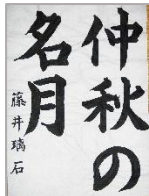 仲秋の
名月
藤井璃石